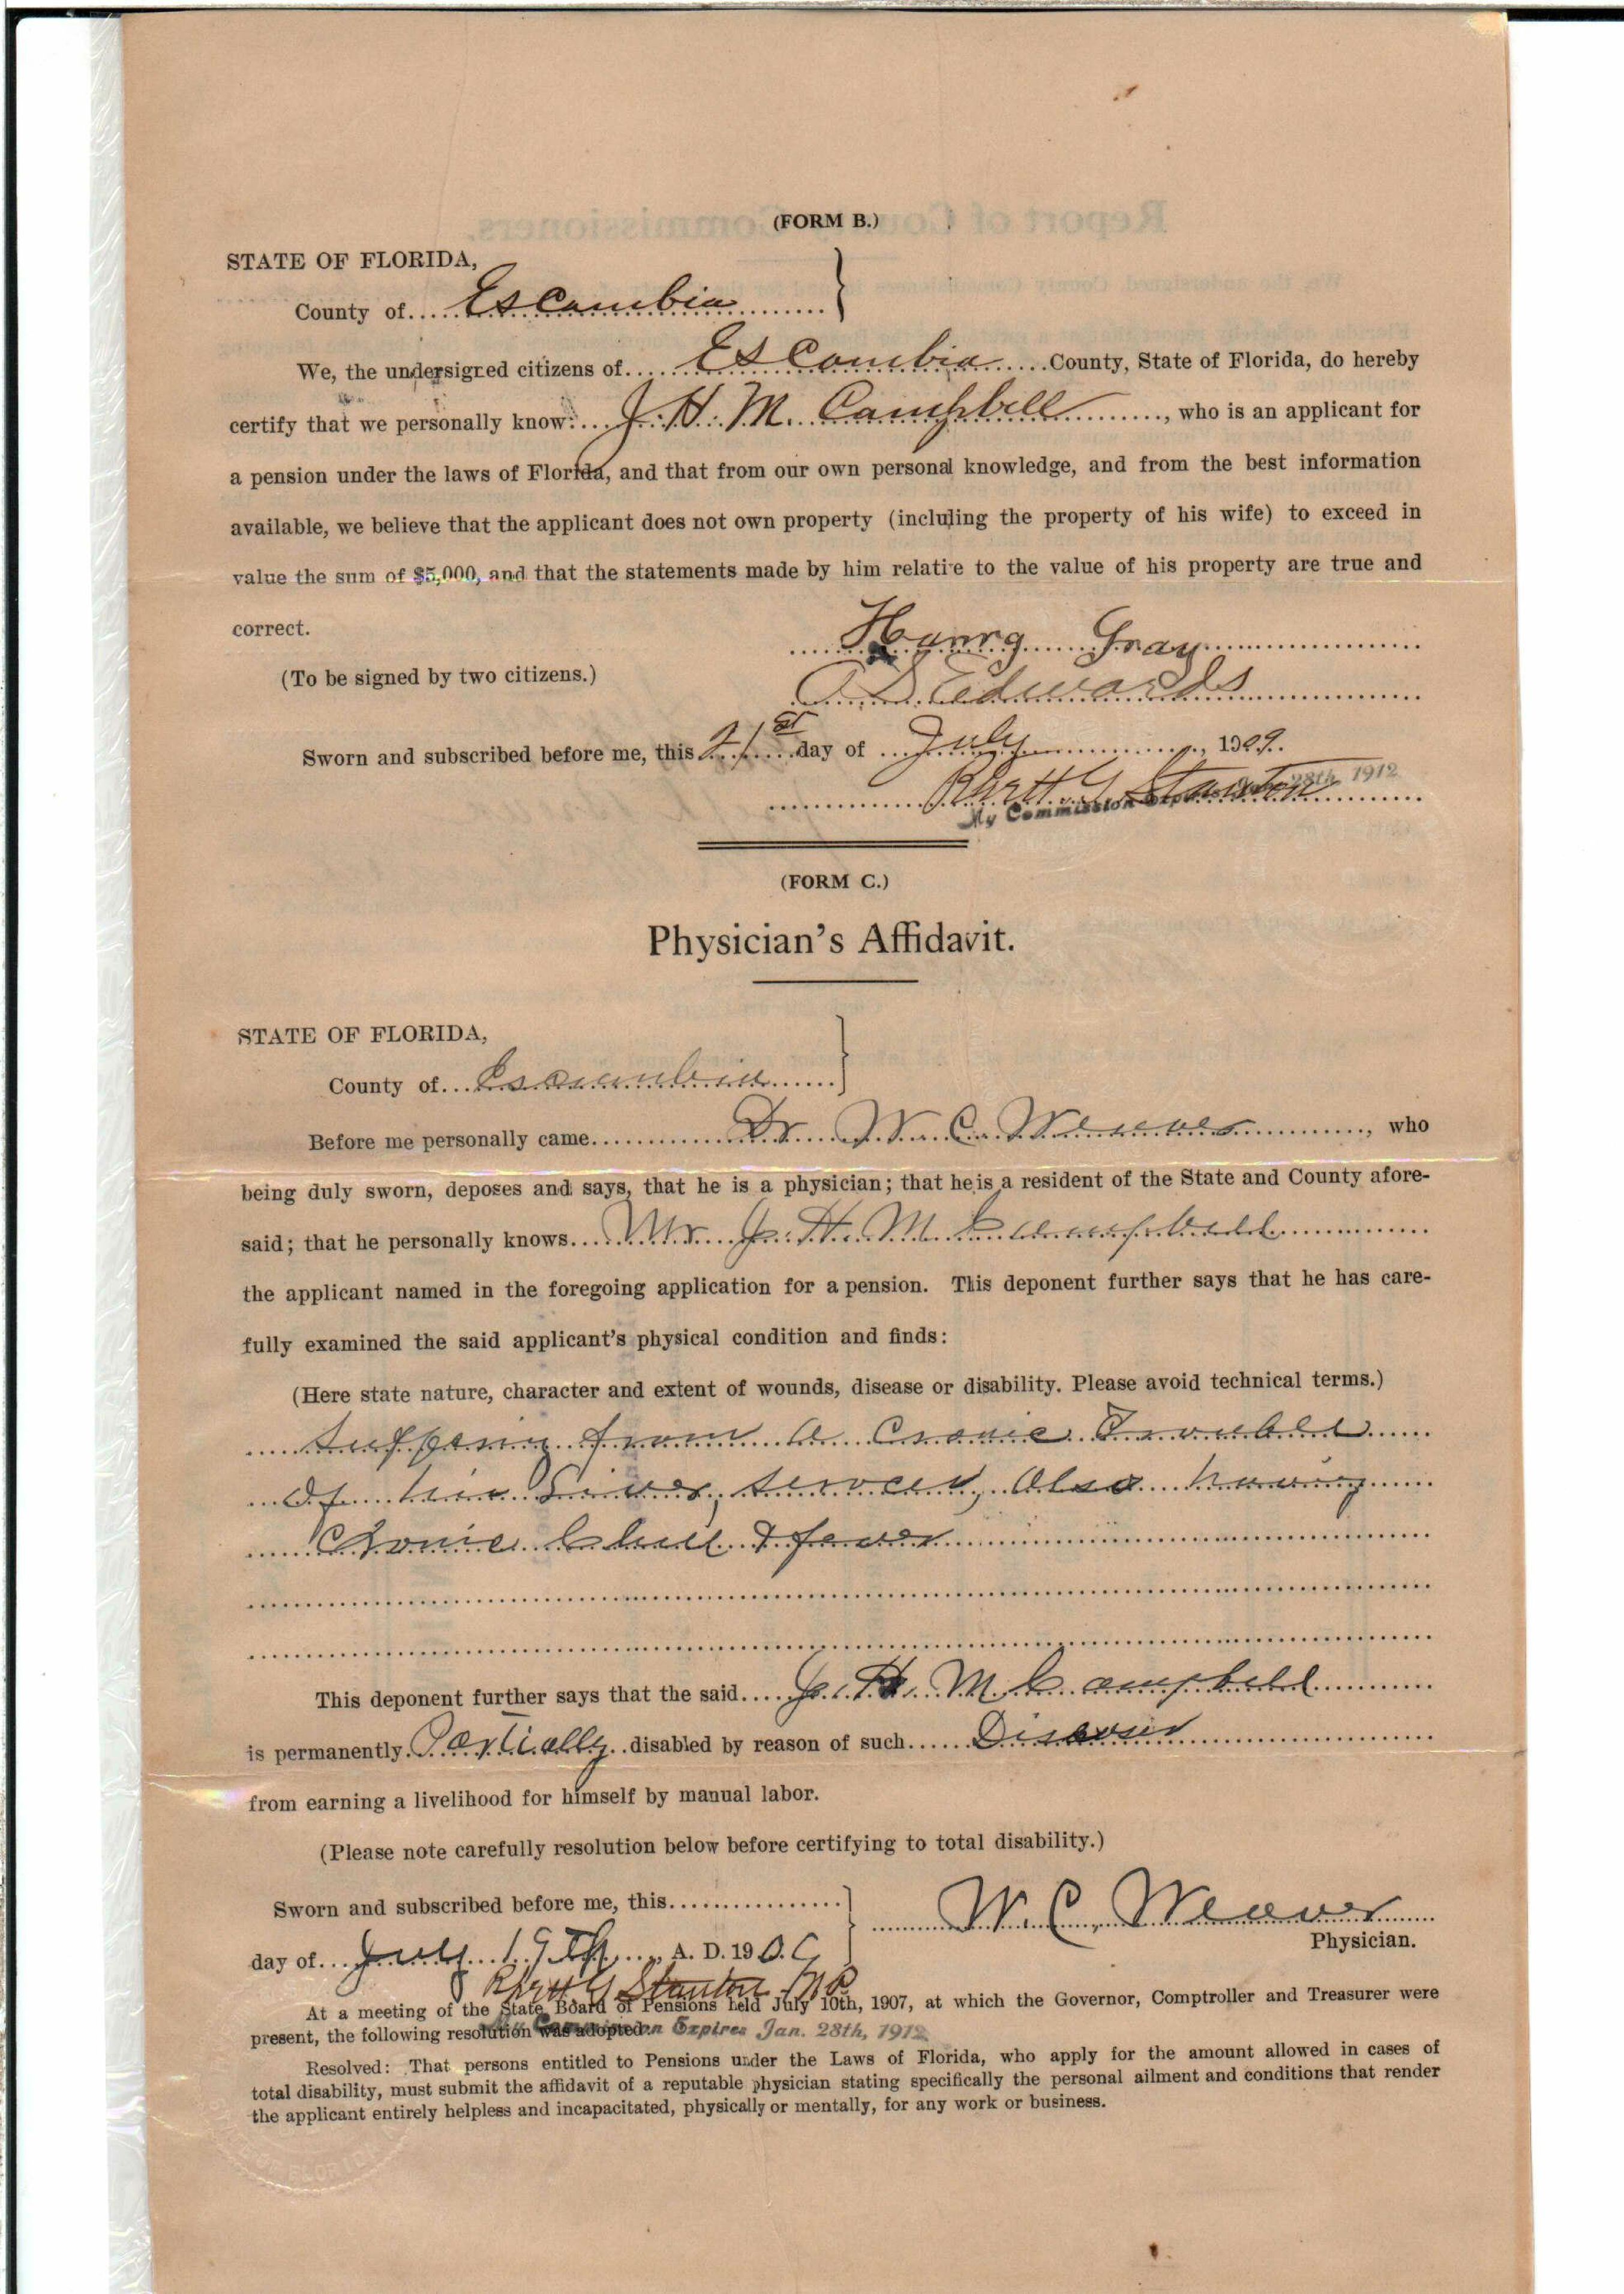 (FORM B.)
STATE OF FLORIDA,
County of Escambia
We, the undersigned citizens of Escambia County, State of Florida, do hereby
certify that we personally know J. H. M. Campbell, who is an applicant for
a pension under the laws of Florida, and that from our own personal knowledge, and from the best information
available, we believe that the applicant does not own property (including the property of his wife) to exceed in
value the sum of $5,000, and that the statements made by him relative to the value of his property are true and
correct.
Gray
(To be signed by two citizens.)
Edwards
Sworn and subscribed before me, this 21st day of July, 1909.
Stanton
My Commission Expires Jan. 28th, 1912
(FORM C.)
Physician's Affidavit.
STATE OF FLORIDA,
County of Escambia
Before me personally came Dr. W. C. Weaver, who
being duly sworn, deposes and says, that he is a physician; that he is a resident of the State and County afore-
said; that he personally knows Mr. J. H. M Campbell
the applicant named in the foregoing application for a pension. This deponent further says that he has care-
fully examined the said applicant's physical condition and finds:
(Here state nature, character and extent of wounds, disease or disability. Please avoid technical terms.)
from a Cronic Trouble
of his Liver, also having
Chronic Chill & fever
This deponent further says that the said J. H. M. Campbell
is permanently Partially disabled by reason of such
from earning a livelihood for himself by manual labor.
(Please note carefully resolution below before certifying to total disability.)
Sworn and subscribed before me, this
W. C. Weaver
day of July 19th, A. D. 190
Physician.
Stanton N P
At a meeting of the State Board of Pensions held July 10th, 1907, at which the Governor, Comptroller and Treasurer were
present, the following resolution was adopted:
My Commission Expires Jan. 28th, 1912
Resolved: That persons entitled to Pensions under the Laws of Florida, who apply for the amount allowed in cases of
total disability, must submit the affidavit of a reputable physician stating specifically the personal ailment and conditions that render
the applicant entirely helpless and incapacitated, physically or mentally, for any work or business.